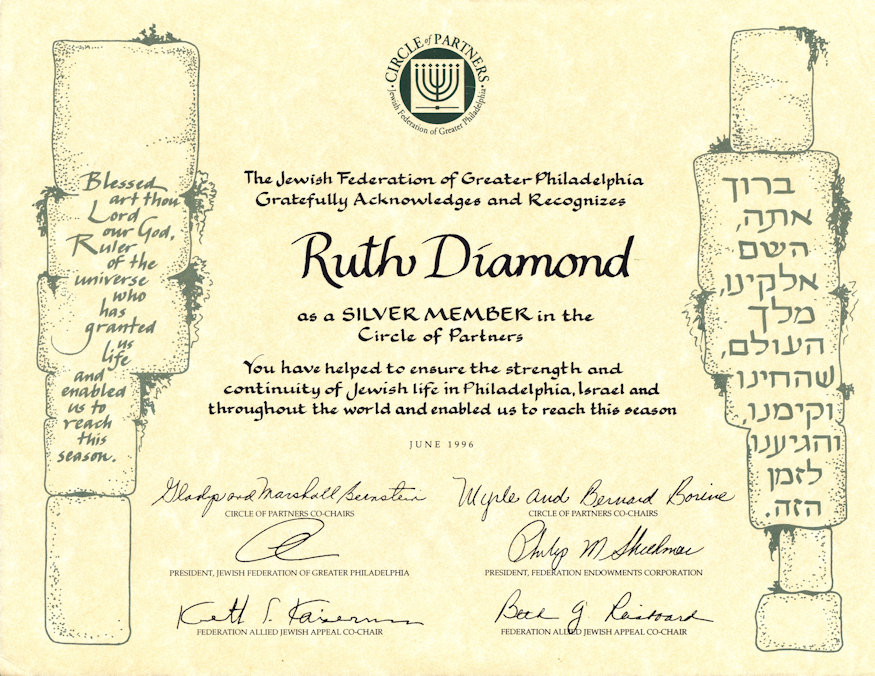 CIRCLE of PARTNERS
Jewish Federation of Greater Philadelphia
Blessed
art thou
Lord
our God,
Ruler
of the
universe
who
has
granted
us
life
and
enabled
us to
reach
this
season.
The Jewish Federation of Greater Philadelphia
Gratefully Acknowledges and Recognizes
Ruth Diamond
as a SILVER MEMBER in the
Circle of Partners
You have helped to ensure the strength and
continuity of Jewish life in Philadelphia, Israel and
throughout the world and enabled us to reach this season
JUNE 1996
Gladys and Marshall Bernstein
CIRCLE OF PARTNERS CO-CHAIRS
Myrle and Bernard Borine
CIRCLE OF PARTNERS CO-CHAIRS
PRESIDENT, JEWISH FEDERATION OF GREATER PHILADELPHIA
Philip M
PRESIDENT, FEDERATION ENDOWMENTS CORPORATION
S. Kaiserman
FEDERATION ALLIED JEWISH APPEAL CO-CHAIR
Beth G.
FEDERATION ALLIED JEWISH APPEAL CO-CHAIR
ברוך
אתה,
השם
אלקינו,
מלך
העולם,
שהחינו
וקימנו,
והגיענו
לזמן
הזה.